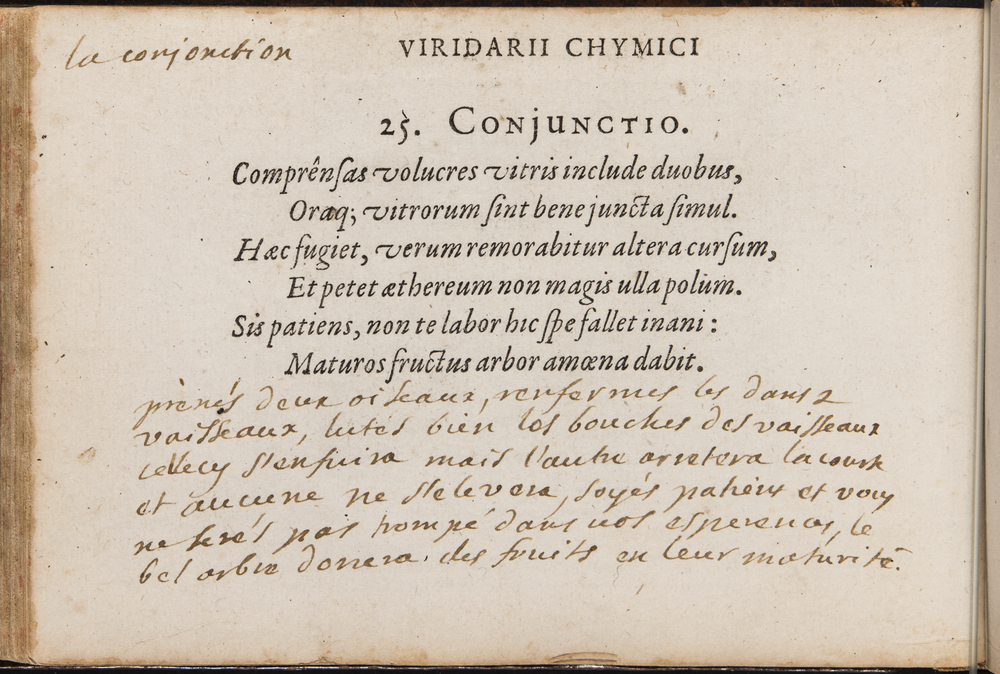 la conjonction
VIRIDARII CHYMICI
25. CONJUNCTIO.
Comprênſas volucres vitris include duobus,
Oraq; vitrorum ſint bene juncta ſimul.
Hæc fugiet, verum remorabitur altera curſum,
Et petet æthereum non magis ulla polum.
Sis patiens, non te labor hic ſpe fallet inani:
Maturos fructus arbor amœna dabit.
prènés deux oiseaux, renfermes les dans 2
vaisseaux, lutés bien les bouches des vaisseaux
cellecy s'enfuira mais l'autre arretera la course
et aucune ne s'elevera, soyés patient et vous
ne serés pas trompé dans vos esperences, le
bel arbre donnera des fruits en leur maturité.